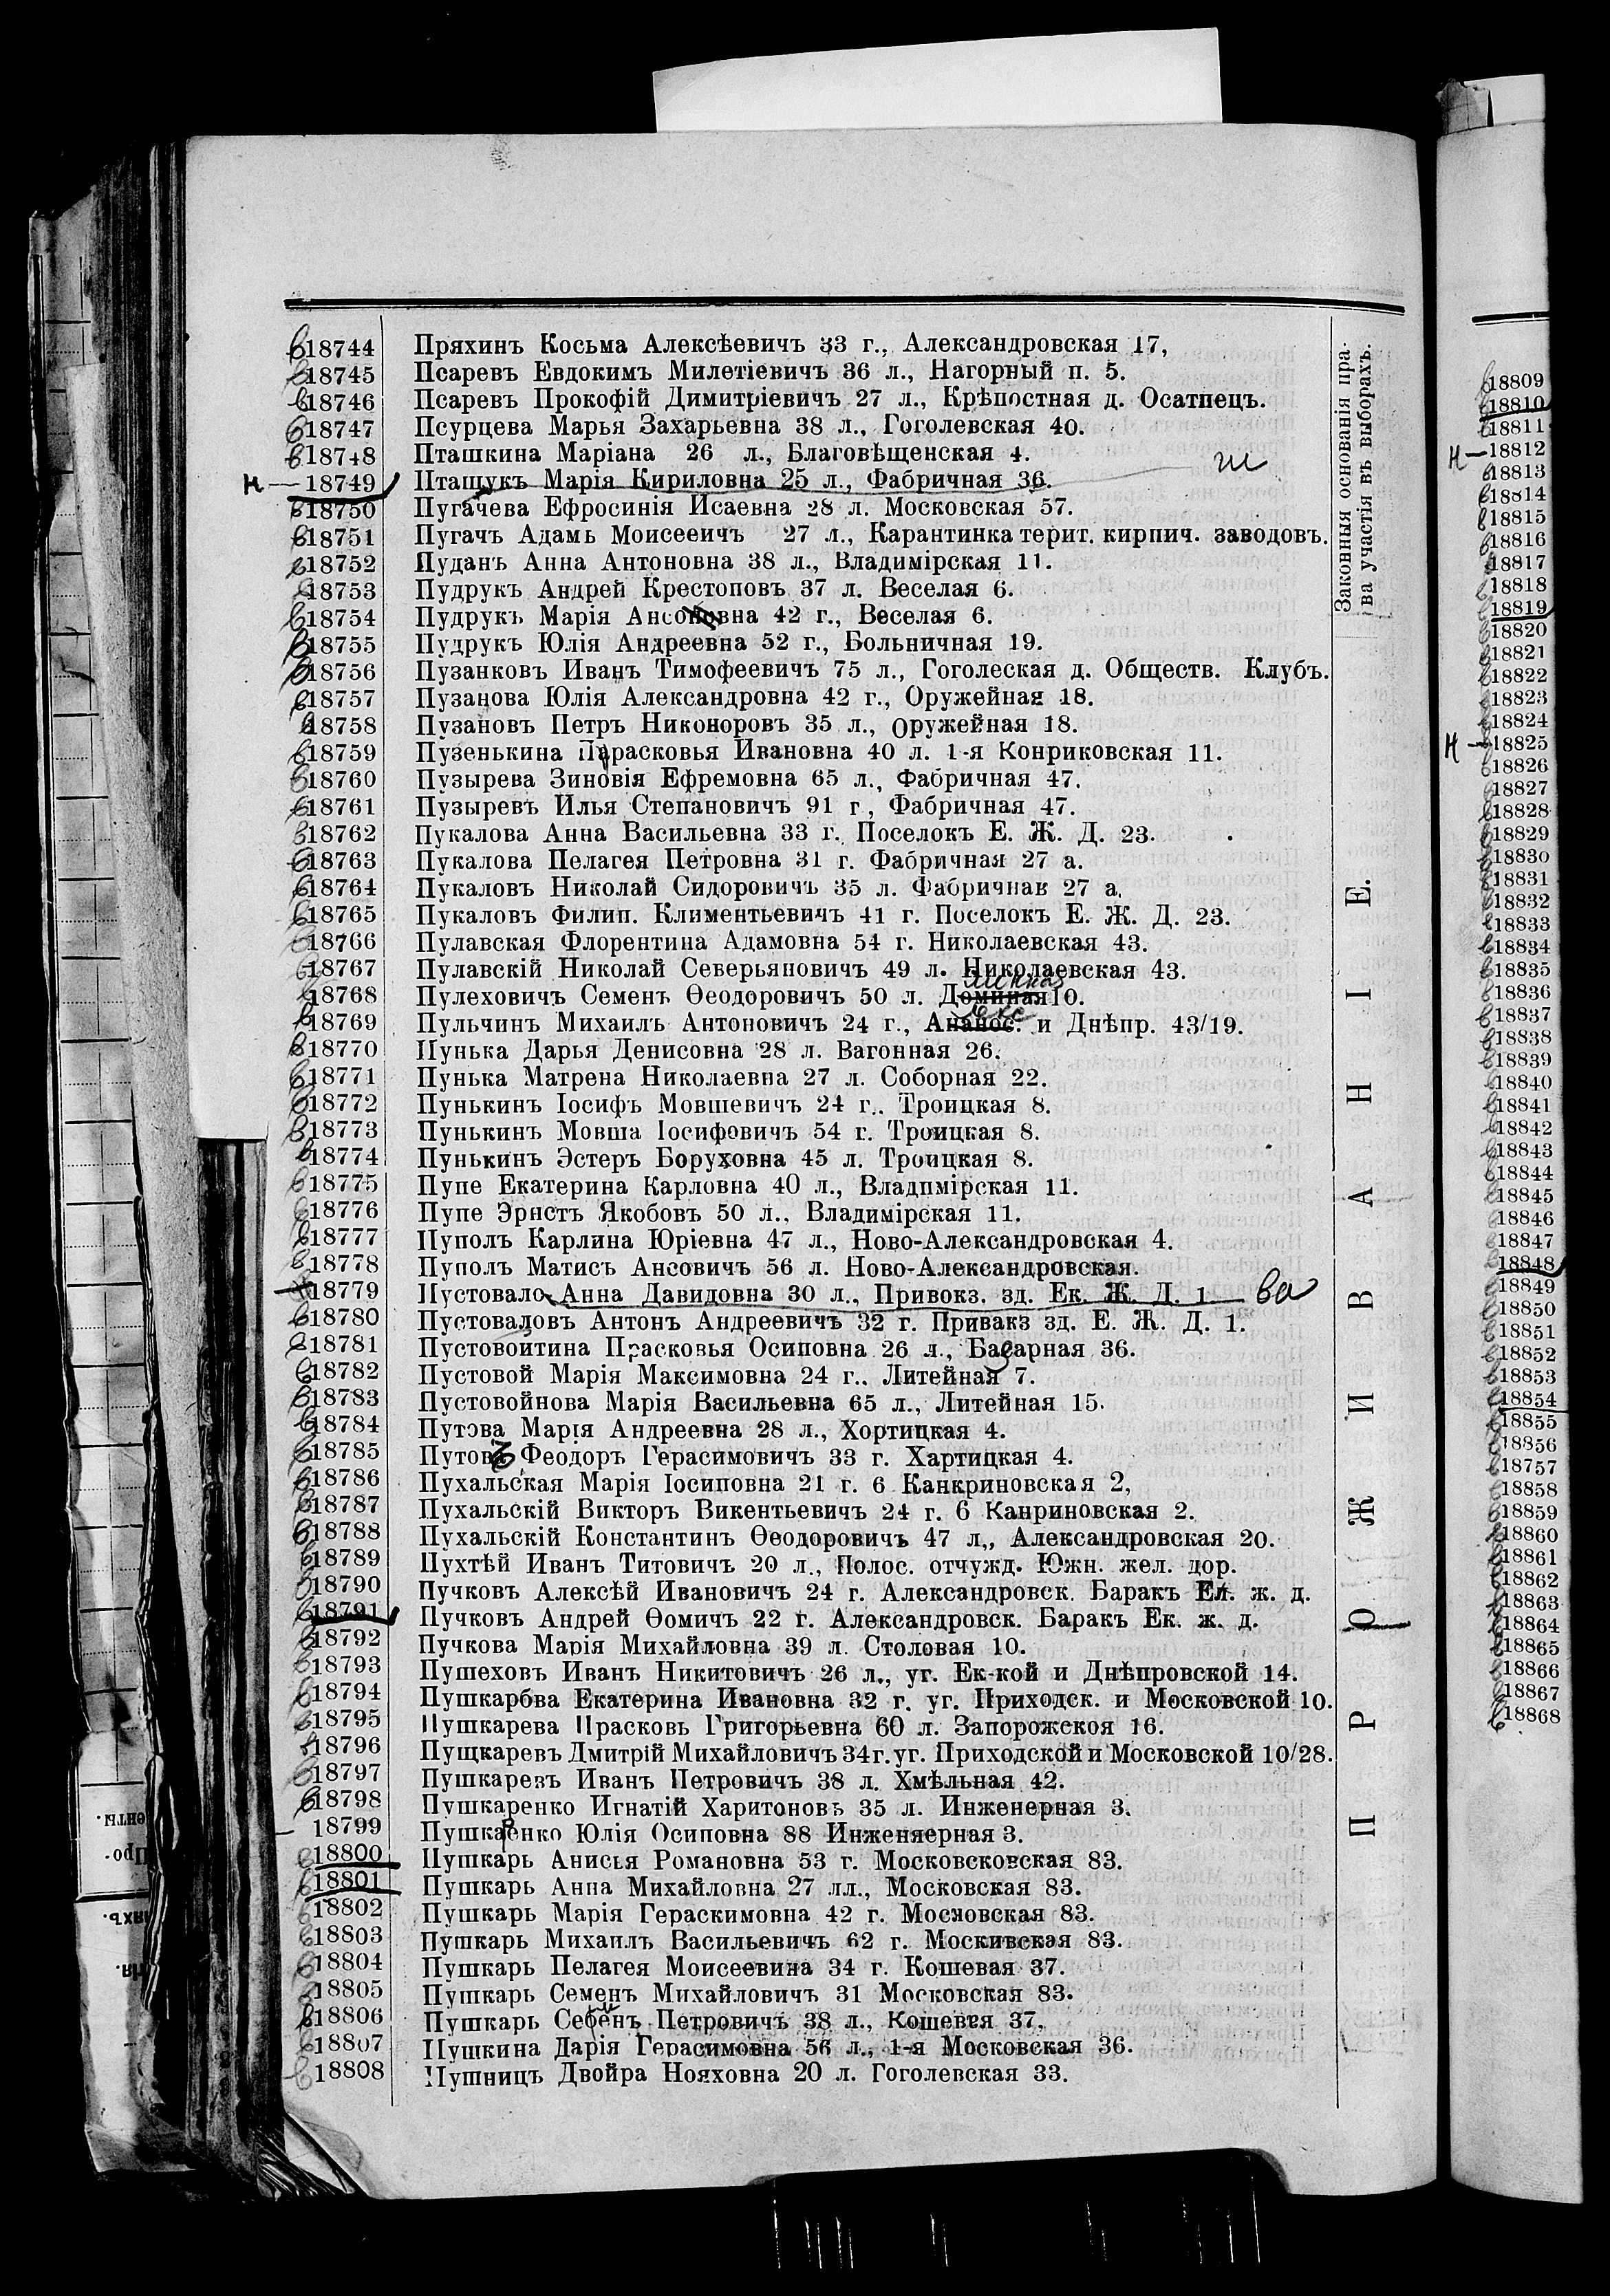 18744 Пряхинъ Косьма Алексѣевичъ 33 г., Александровская 17,
18745 Псаревъ Евдокимъ Милетіевичъ 36 л., Нагорный п. 5.
18746 Псаревъ Прокофій Димитріевичъ 27 л., Крѣпостная д. Осатпецъ.
18747 Псурцева Марья Захарьевна 38 л., Гоголевская 40.
18748 Пташкина Маріана 26 л., Благовѣщенская 4.
н — 18749 Птащукъ Марія Кириловна 25 л., Фабричная 36. ш
18750 Пугачева Ефросинія Исаевна 28 л. Московская 57.
18751 Пугачъ Адамь Моисееичъ 27 л., Карантинка терит. кирпич. заводовъ.
18752 Пуданъ Анна Антоновна 38 л., Владимірская 11.
18753 Пудрукъ Андрей Крестоповъ 37 л. Веселая 6.
18754 Пудрукъ Марія Ансоновна 42 г., Веселая 6.
18755 Пудрукъ Юлія Андреевна 52 г., Больничная 19.
18756 Пузанковъ Иванъ Тимофеевичъ 75 л., Гоголеская д. Обществ. Клубъ.
18757 Пузанова Юлія Александровна 42 г., Оружейная 18.
18758 Пузановъ Петръ Никоноровъ 35 л., оружейная 18.
18759 Пузенькина Парасковья Ивановна 40 л. 1-я Конриковская 11.
18760 Пузырева Зиновія Ефремовна 65 л., Фабричная 47.
18761 Пузыревъ Илья Степановичъ 91 г, Фабричная 47.
18762 Пукалова Анна Васильевна 33 г. Поселокъ Е. Ж. Д. 23.
18763 Пукалова Пелагея Петровна 31 г. Фабричная 27 а.
18764 Пукаловъ Николай Сидоровичъ 35 л. Фабричнав 27 а.
18765 Пукаловъ Филип. Климентьевичъ 41 г. Поселокъ Е. Ж. Д. 23.
18766 Пулавская Флорентина Адамовна 54 г. Николаевская 43.
18767 Пулавскій Николай Северьяновичъ 49 л. Николаевская 43.
18768 Пулеховичъ Семенъ Ѳеодоровичъ 50 л. Доминая 10.
18769 Пульчинъ Михаилъ Антоновичъ 24 г., Ананос. и Днѣпр. 43/19.
18770 Пунька Дарья Денисовна 28 л. Вагонная 26.
18771 Пунька Матрена Николаевна 27 л. Соборная 22.
18772 Пунькинъ Іосифъ Мовшевичъ 24 г.. Троицкая 8.
18773 Пунькинъ Мовша Іосифовичъ 54 г. Троицкая 8.
18774 Пунькинъ Эстеръ Боруховна 45 л. Троицкая 8.
18775 Пупе Екатерина Карловна 40 л., Владпмірская 11.
18776 Пупе Эрнстъ Якобовъ 50 л., Владимірская 11.
18777 Пуполъ Карлина Юріевна 47 л., Ново-Александровская 4.
18778 Пуполъ Матисъ Ансовичъ 56 л. Ново-Александровская.
18779 Пустовало Анна Давидовна 30 л., Привокз. зд. Ек. Ж. Д. 1 ва
18780 Пустоваловъ Антонъ Андреевичъ 32 г. Привакз зд. Е. Ж. Д. 1.
18781 Пустовоитина Прасковья Осиповна 26 л., Базарная 36.
18782 Пустовой Марія Максимовна 24 г.. Литейная 7.
18783 Пустовойнова Марія Васильевна 65 л., Литейная 15.
18784 Путова Марія Андреевна 28 л., Хортицкая 4.
18785 Путовъ Феодоръ Герасимовичъ 33 г. Хартицкая 4.
18786 Пухальская Марія Іосиповна 21 г. 6 Канкриновская 2,
18787 Пухальскій Викторъ Викентьевичъ 24 г. 6 Канриновская 2.
18788 Пухальскій Константинъ Ѳеодоровичъ 47 л,, Александровская 20.
18789 Пухтѣй Иванъ Титовичъ 20 л., Полос. отчужд. Южн. жел. дор.
18790 Пучковъ Алексѣй Ивановичъ 24 г. Александровск. Баракъ Ел. ж. д.
18791 Пучковъ Андрей Ѳомичъ 22 г. Александровск. Баракъ Ек. ж. д.
18792 Пучкова Марія Михайловна 39 л. Столовая 10.
18793 Пушеховъ Иванъ Никитовичъ 26 л., уг. Ек-кой и Днѣпровской 14.
18794 Пушкарбва Екатерина Ивановна 32 г. уг. Приходск. и Московской 10.
18795 Пушкарева Прасковь Григорьевна 60 л. Запорожскоя 16.
18796 Пущкаревъ Дмитрій Михайловичъ 34 г. уг. Приходской и Московской 10/28.
18797 Пушкаревъ Иванъ Петровичъ 38 л. Хмѣльная 42.
18798 Пушкаренко Игнатій Харитоновъ 35 л. Инженерная 3.
18799 Пушкаренко Юлія Осиповна 88 Инженяерная 3.
18800 Пушкарь Анисья Романовна 53 г. Московсковская 83.
18801 Пушкарь Анна Михайловна 27 лл., Московская 83.
18802 Пушкарь Марія Гераскимовна 42 г. Московская 83.
18803 Пушкарь Михаилъ Васильевичъ 62 г. Москивская 83.
18804 Пушкарь Пелагея Моисеевина 34 г. Кошевая 37.
18805 Пушкарь Семенъ Михайловичъ 31 Московская 83.
18806 Пушкарь Сефенъ Петровичъ 38 л., Кошевая 37,
18807 Пушкина Дарія Герасимовна 56 л., 1-я Московская 36.
18808 Пушницъ Двойра Нояховна 20 л. Гоголевская 33.
Законныя основанія пра-
ва участія въ выборахъ.
ПРОЖИВАНІЕ.
18809
18810
18811
н — 18812
18813
18814
18815
18816
18817
18818
18819
18820
18821
18822
18823
18824
н — 18825
18826
18827
18828
18829
18830
18831
18832
18833
18834
18835
18836
18837
18838
18839
18840
18841
18842
18843
18844
18845
18846
18847
18848
18849
18850
18851
18852
18853
18854
18855
18856
18757
18858
18859
18860
18861
18862
18863
18864
18865
18866
18867
18868